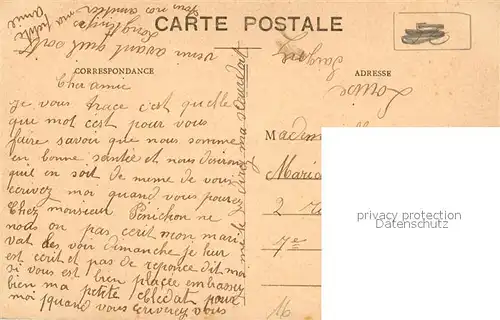 CARTE POSTALE
CORRESPONDANCE
ADRESSE
Cher amie
je vous trace c'est quelque
que mot c'est pour vous
faire savoir que nous somme
en bonne santée et nous desirons
quil en soit de meme de vous
ecrivez moi quand vous pourez
Chez monsieur Penichon ne
nous on pas ecrit mon mari
vat les voir Dimanche je leur
est ecrit et pas de reponce dit moi
si vous est bien placée embrassez
bien ma petite pour
moi quand vous ecriverez vous
me le direz ma
venir avant quel sorte
Longtemps
ma petite
amie
Louise
Madem
Marie
2
7e
M
privacy protection
Datenschutz